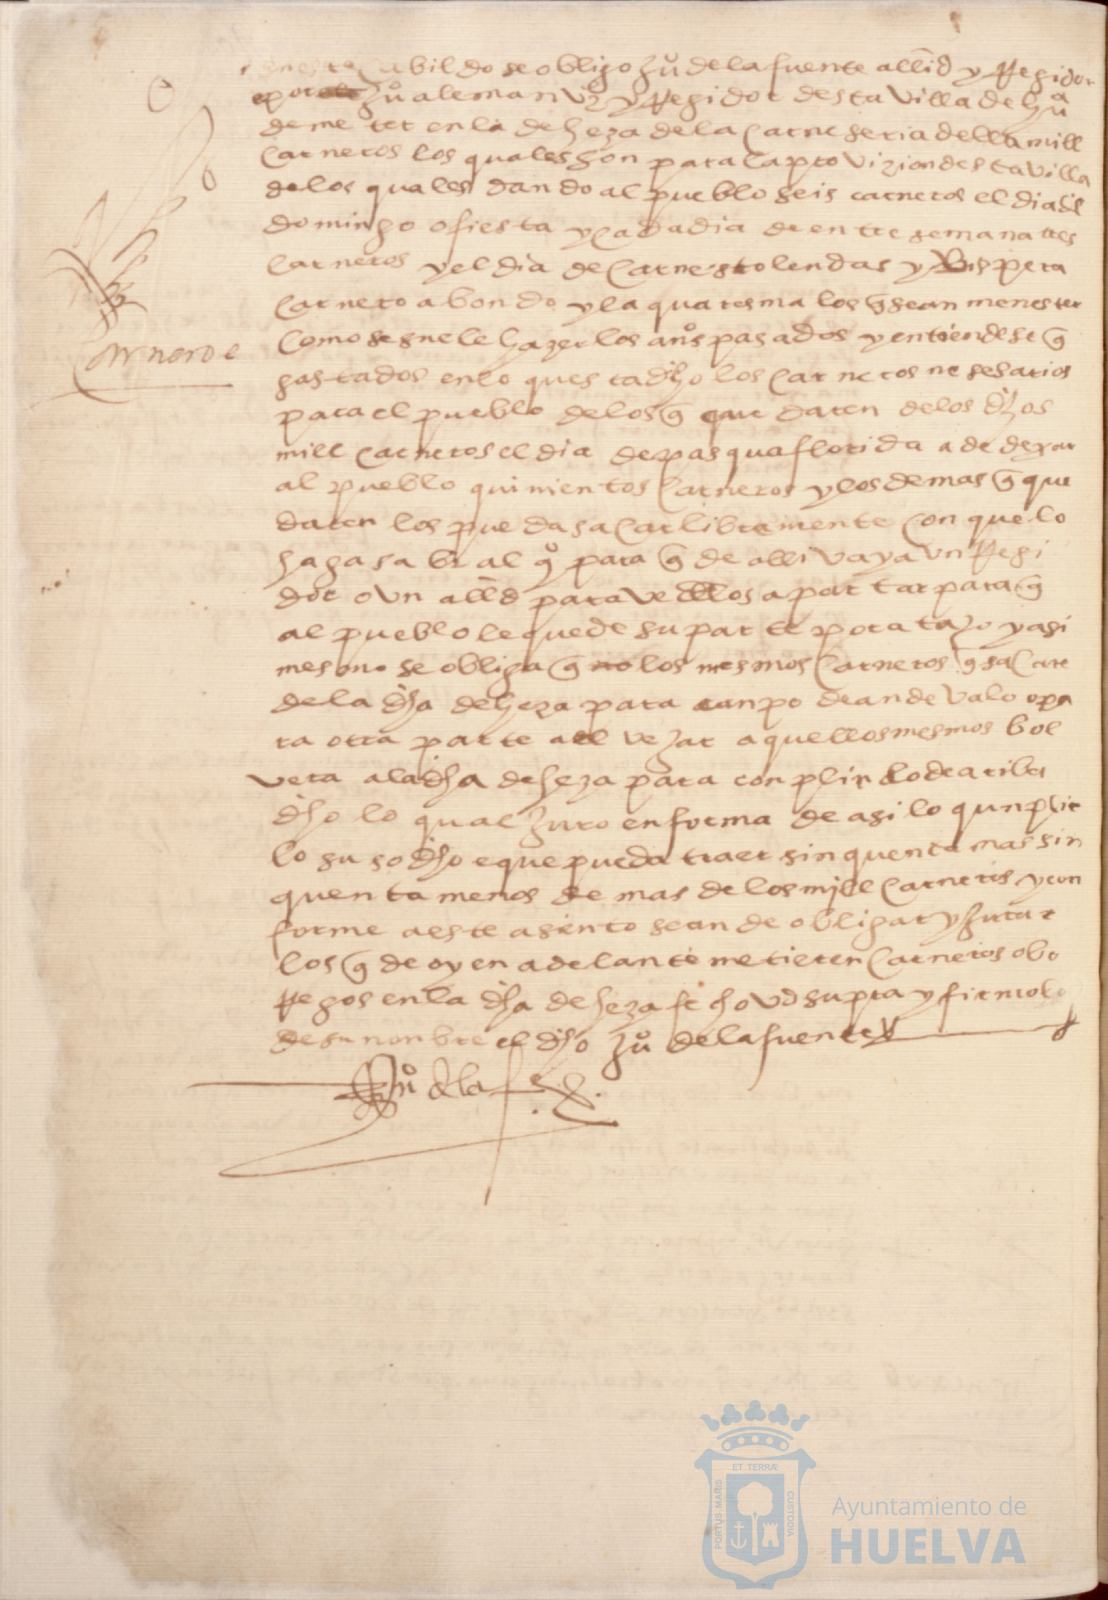 en este Cabildo se obligo Juº de la fuente alld y Regidor
e por Juº aleman vzº y Regidor desta villa de huª
de meter en la deheza de la Carneseria della mill
Carneros los quales son para la provizion desta villa
de los quales dando al pueblo seis carneros el dia de
domingo o fiesta y cada dia de entre semana tres
Carneros y el dia de Carnestolendas y Bispera
Carnero abondo y la quaresma los q sean menester
Como se suele hazer los años pasados y entiendese q
gastados en lo questa dho los Carneros nesesarios
para el pueblo de los q que daren de los dhos
mill Carneros el dia de pasqua florida a de dexar
al pueblo quinientos Carneros y los demas q que
daren los pueda sacar libremente Con que lo
haga saber al qº para q de alli vaya un Regi
dor o un alld para vellos apartar para q
al pueblo le quede su parte por atajo y asi
mesmo se obliga q los mesmos Carneros q sacare
de la dha deheza para canpo de andevalo o pa
ra otra parte a el vezar aquellos mesmos bol
vera a la dha deheza para conplir lo de arriba
dho lo qual juro en forma de asi lo qunplir
lo susodho e que pueda traer sinquenta mas sin
quenta menos de mas de los mill Carneros y con
forme a este asiento sean de obligar y jurar
los q de oy en adelante metieren Carneros o bo
Regos en la dha deheza fecho ud supra y firmolo
de su nonbre el dho Juº de la fuente
Juº de la fe
Carneros
ET TERRÆ
PORTUS MARIS
CUSTODIA
Ayuntamiento de
HUELVA